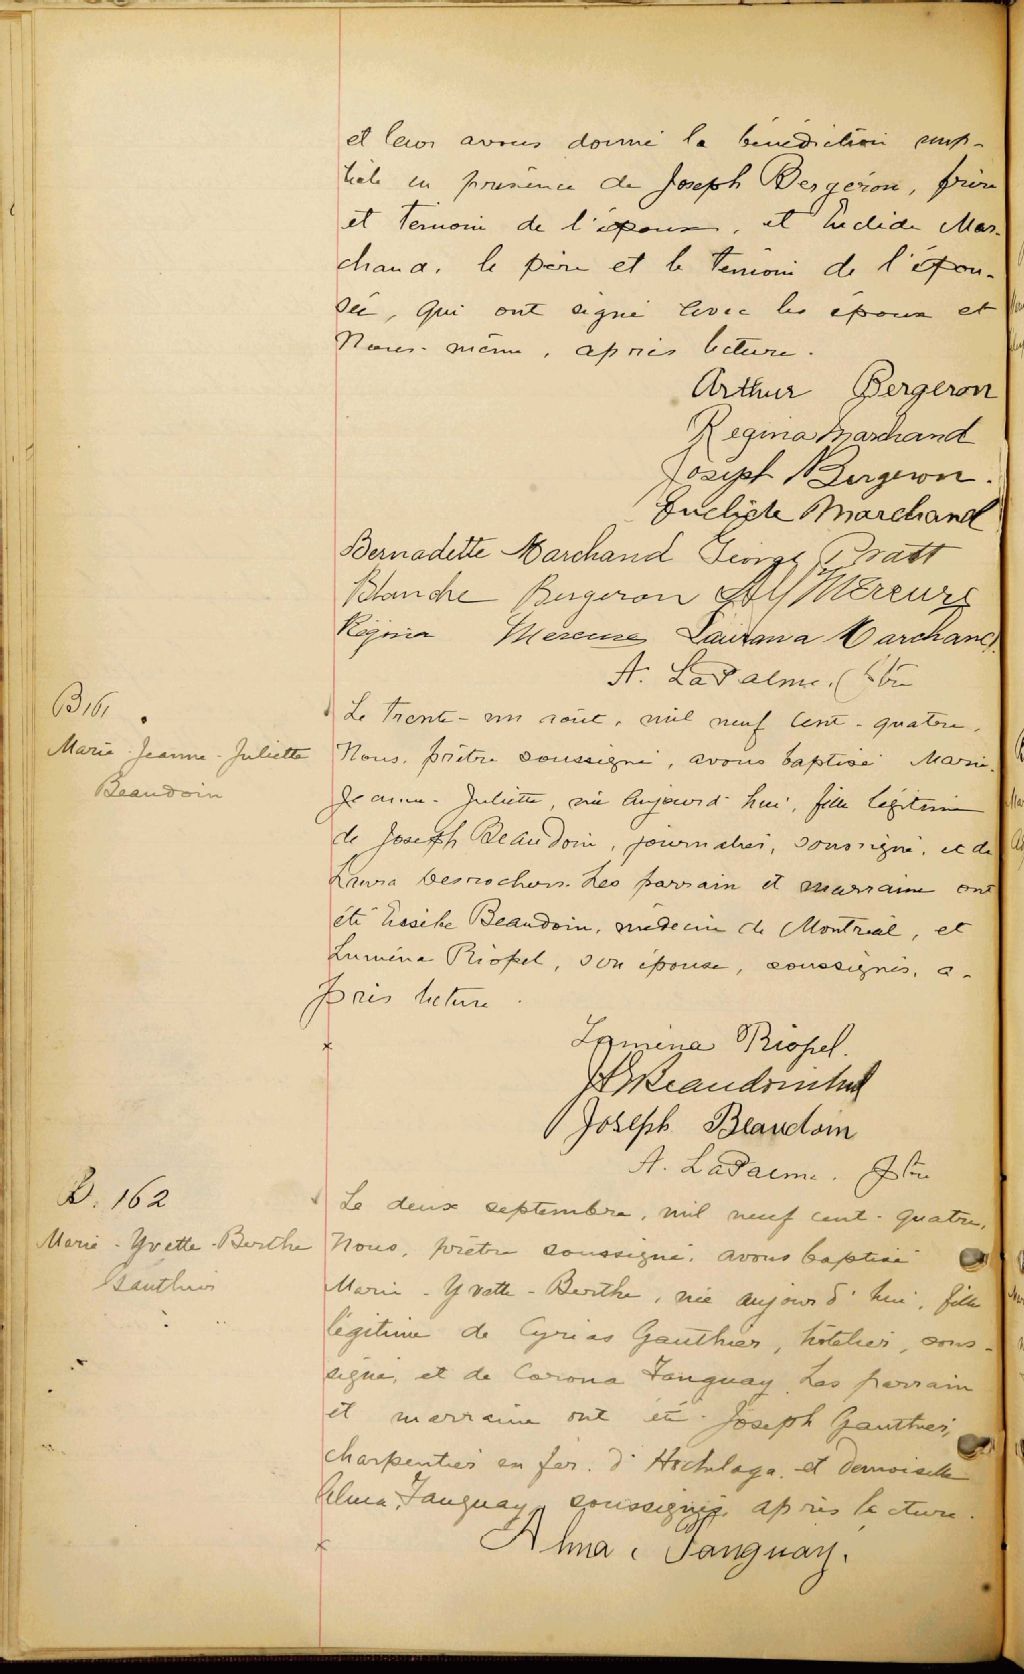 et leur avons donné la bénédiction nup-
tiale en présence de Joseph Bergeron, frère
et témoin de l'époux, et Euclide Mar-
chand, le père et le témoin de l'épou-
sée, qui ont signé avec les époux et
Nous-même, après lecture.
Arthur Bergeron
Regina Marchand
Joseph Bergeron.
Euclide Marchand
Bernadette Marchand George Pratt
Blanche Bergeron Mercure
Régina Mercure Laurana Marchand.
A. LaPalme, Ptre
B161
Marie-Jeanne-Juliette
Beaudoin
Le trente-un août, mil neuf cent-quatre,
Nous, prêtre soussigné, avons baptisé Marie-
Jeanne-Juliette, née aujourd'hui, fille légitime
de Joseph Beaudoin, journalier, soussigné, et de
Laura Desrochers. Les parrain et marraine ont
été Beaudoin, médecin de Montréal, et
Luména Riopel, son épouse, soussignés, a-
près lecture.
Lumina Riopel.
Beaudoin
Joseph Beaudoin
A. LaPalme. Ptre
B. 162
Marie-Yvette-Berthe
Gauthier
Le deux septembre, mil neuf cent-quatre,
Nous, prêtre soussigné, avons baptisé
Marie-Yvette-Berthe, née aujourd'hui, fille
légitime de Cyrias Gauthier, hôtelier, sous-
signé, et de Corona Tanguay. Les parrain
et marraine ont été Joseph Gauthier,
charpentier en fer, d'Hochelaga, et demoiselle
Alma Tanguay, soussignés, après lecture.
Alma Tanguay.